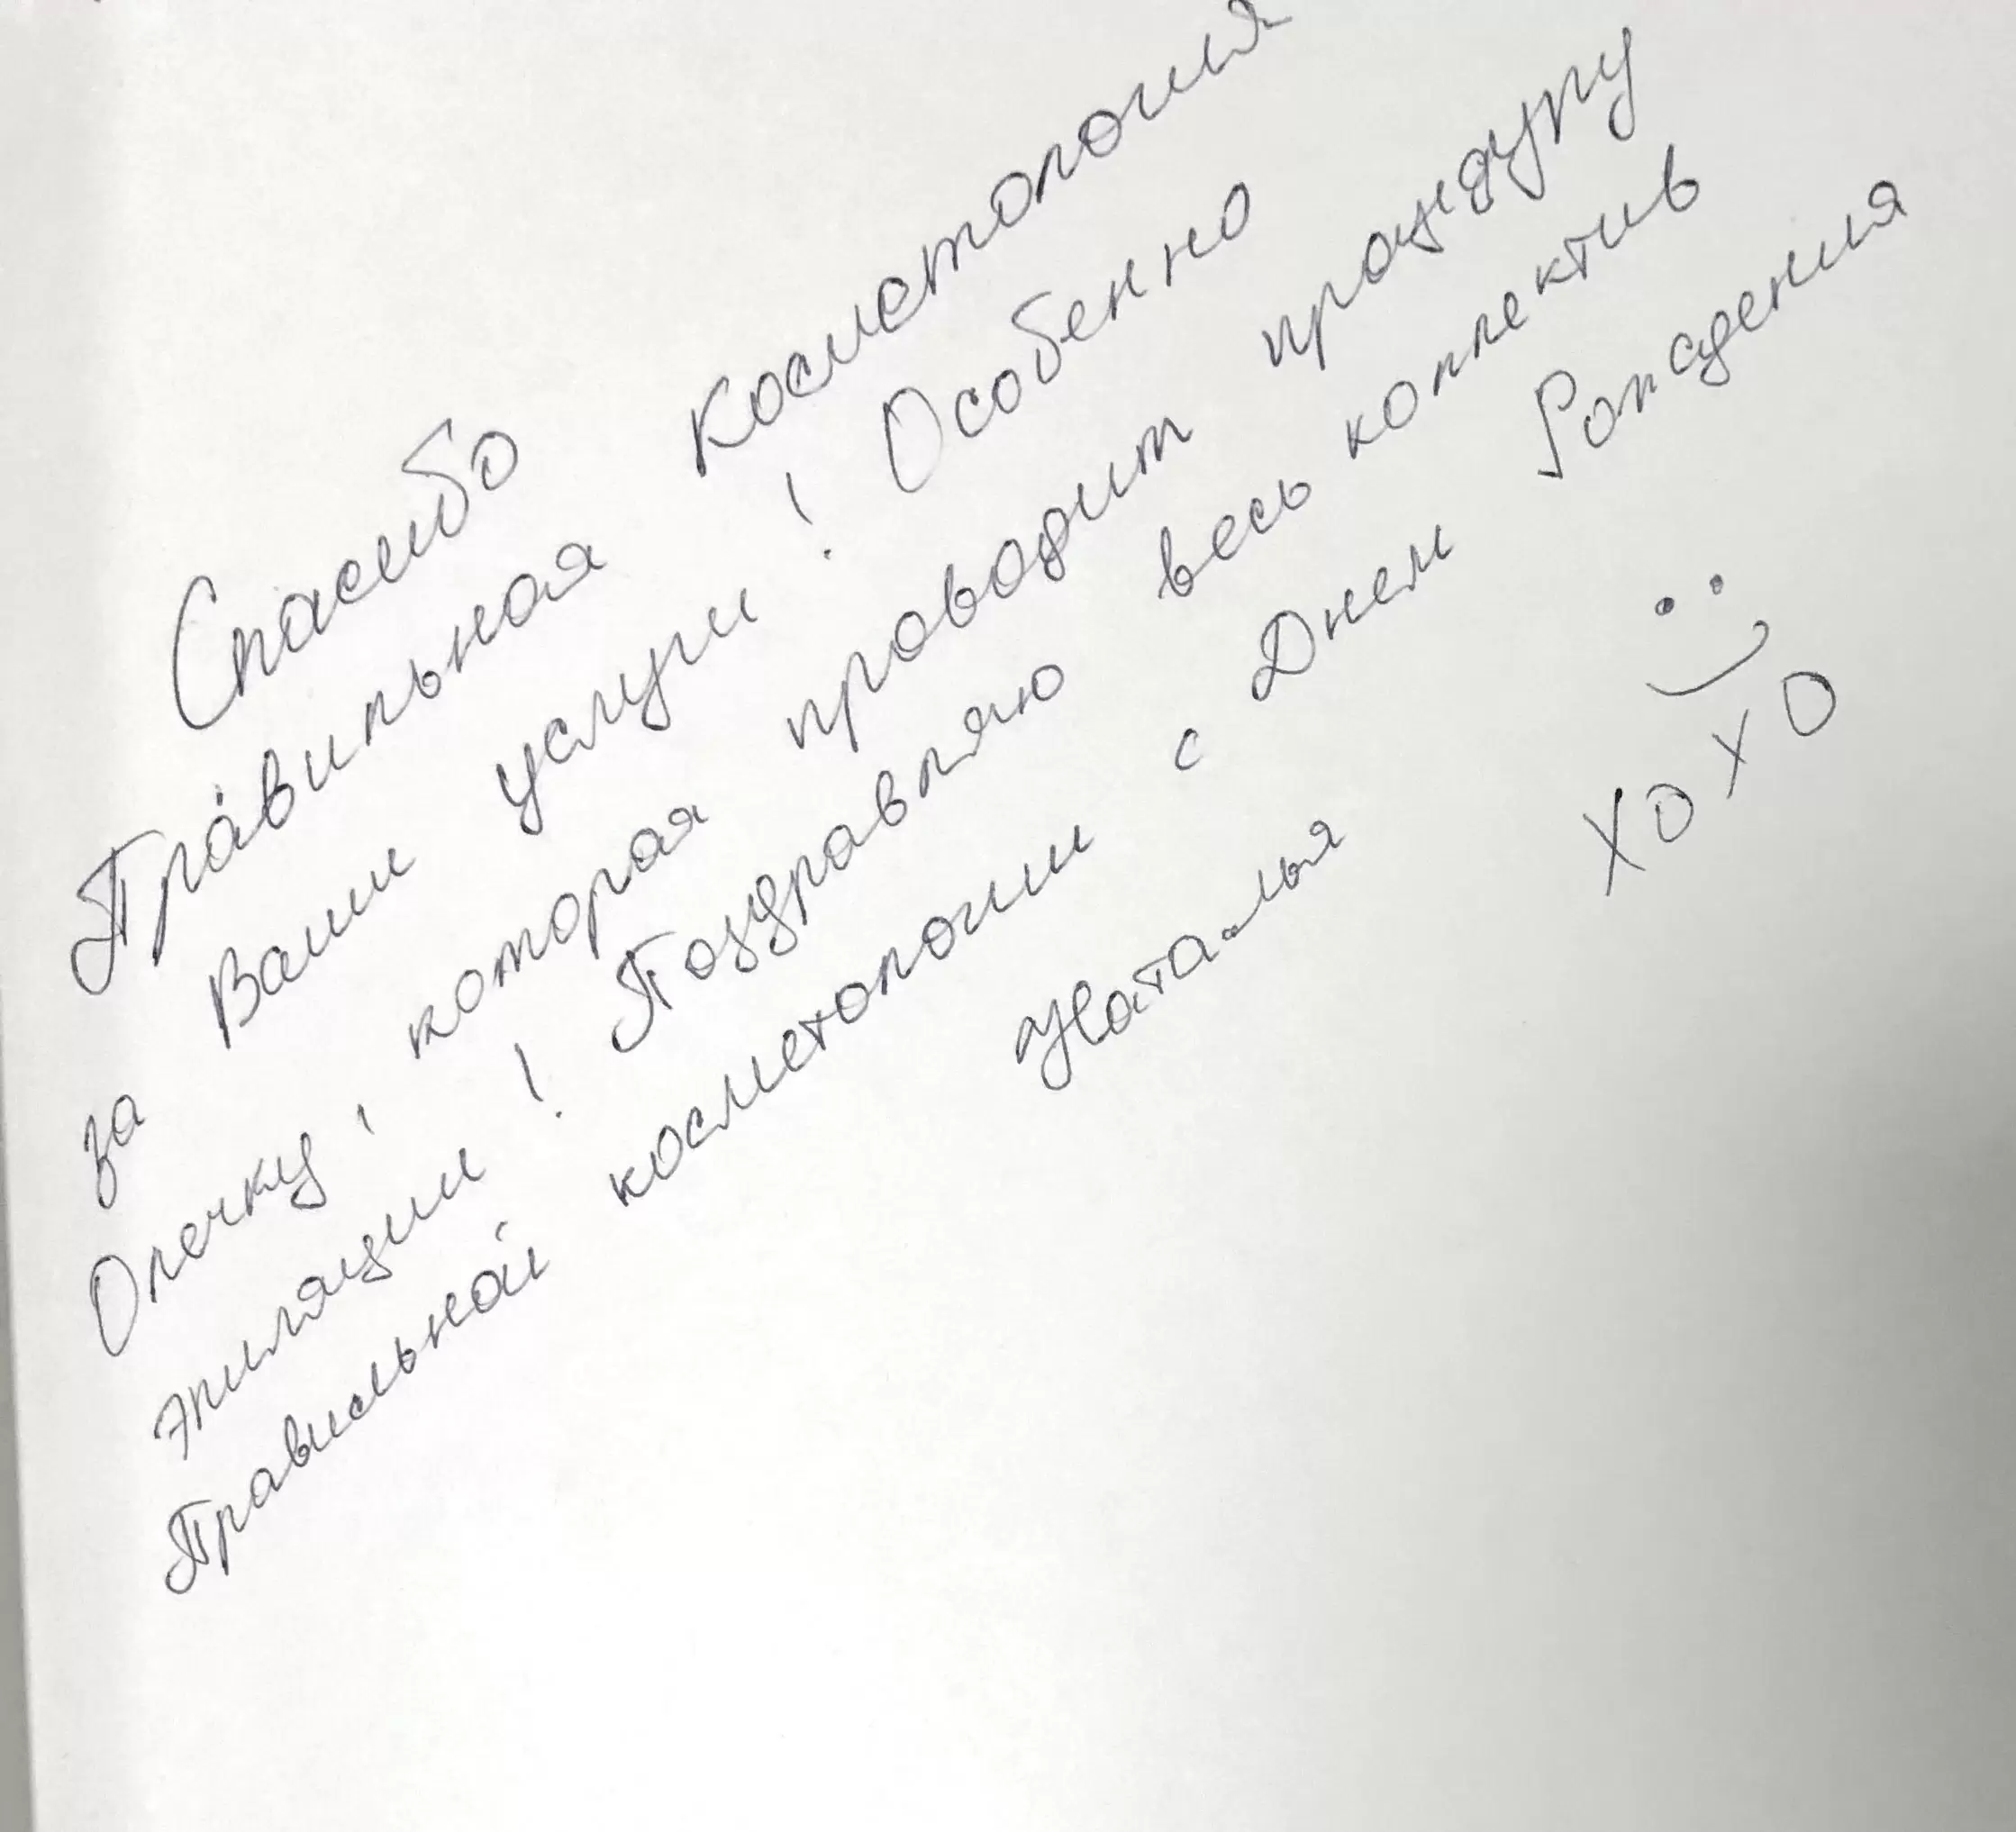 Спасибо
Правильная Косметология
за Ваши услуги! Особенно
Олечку, которая проводит процедуру
эпиляции! Поздравляю весь коллектив
Правильной косметологии с Днем Рождения
Наталья
XOXO